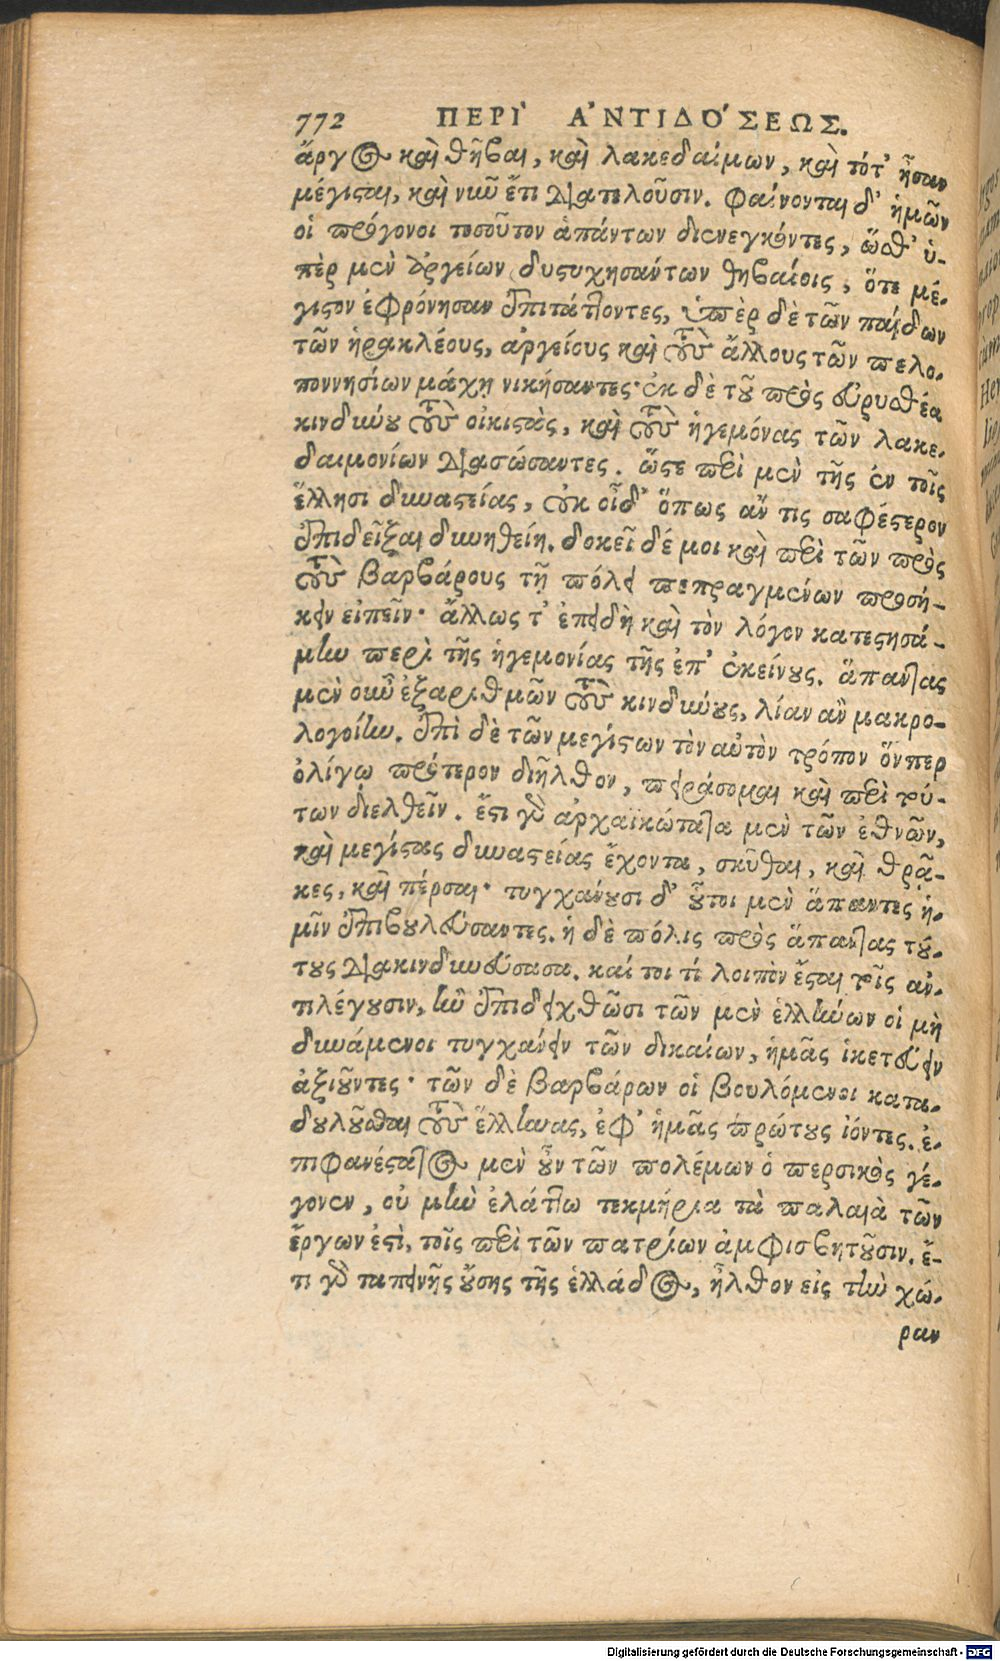 772 ΠΕΡῚ ἈΝΤΙΔΌΣΕΩΣ.
ἄργος καὶ θῆβαι, καὶ λακεδαίμων, καὶ τότ' ἦσαν
μέγισται, καὶ νῦν ἔτι διατελοῦσιν. φαίνονται δ' ἡμῶν
οἱ πρόγονοι τοσοῦτον ἁπάντων διενεγκόντες, ὥσθ' ὑ-
πὲρ μὲν ἀργείων δυστυχησάντων θηβαίοις, ὅτε μέ-
γιστον ἐφρόνησαν ἐπιτάττοντες, ὑπὲρ δὲ τῶν παίδων
τῶν ἡρακλέους, ἀργείους καὶ τοὺς ἄλλους τῶν πελο-
ποννησίων μάχῃ νικήσαντες· ἐκ δὲ τοῦ πρὸς εὐρυσθέα
κινδύνου τοὺς οἰκιστὰς, καὶ τοὺς ἡγεμόνας τῶν λακε-
δαιμονίων διασώσαντες. ὥστε περὶ μὲν τῆς ἐν τοῖς
ἕλλησι δυναστείας, οὐκ οἶδ' ὅπως ἄν τις σαφέστερον
ἐπιδεῖξαι δυνηθείη. δοκεῖ δέ μοι καὶ περὶ τῶν πρὸς
τοὺς βαρβάρους τῇ πόλει πεπραγμένων προσή-
κειν εἰπεῖν· ἄλλως τ' ἐπειδὴ καὶ τὸν λόγον κατεστησά-
μην περὶ τῆς ἡγεμονίας τῆς ἐπ' ἐκείνους. ἅπαντας
μὲν οὖν ἐξαριθμῶν τοὺς κινδύνους, λίαν ἂν μακρο-
λογοίην. ἐπὶ δὲ τῶν μεγίστων τὸν αὐτὸν τρόπον ὅνπερ
ὀλίγῳ πρότερον διῆλθον, πειράσομαι καὶ περὶ τού-
των διελθεῖν. ἔστι γὰρ ἀρχαϊκώτατα μὲν τῶν ἐθνῶν,
καὶ μεγίστας δυναστείας ἔχοντα, σκῦθαι, καὶ θρᾷ-
κες, καὶ πέρσαι· τυγχάνουσι δ' οὗτοι μὲν ἅπαντες ἡ-
μῖν ἐπιβουλεύσαντες. ἡ δὲ πόλις πρὸς ἅπαντας τού-
τους διακινδυνεύσασα. καί τοι τί λοιπὸν ἔσται τοῖς ἀν-
τιλέγουσιν, ἢν ἐπιδειχθῶσι τῶν μὲν ἑλλήνων οἱ μὴ
δυνάμενοι τυγχάνειν τῶν δικαίων, ἡμᾶς ἱκετεύειν
ἀξιοῦντες· τῶν δὲ βαρβάρων οἱ βουλόμενοι κατα-
δουλοῦσθαι τοὺς ἕλληνας, ἐφ' ἡμᾶς πρώτους ἰόντες. ἐ-
πιφανέστατος μὲν οὖν τῶν πολέμων ὁ περσικὸς γέ-
γονεν, οὐ μὴν ἐλάττω τεκμήρια τὰ παλαιὰ τῶν
ἔργων ἐστὶ, τοῖς περὶ τῶν πατρίων ἀμφισβητοῦσιν. ἔ-
τι γὰρ ταπεινῆς οὔσης τῆς ἑλλάδος, ἦλθον εἰς τὴν χώ-
ραν
Digitalisierung gefördert durch die Deutsche Forschungsgemeinschaft - DFG